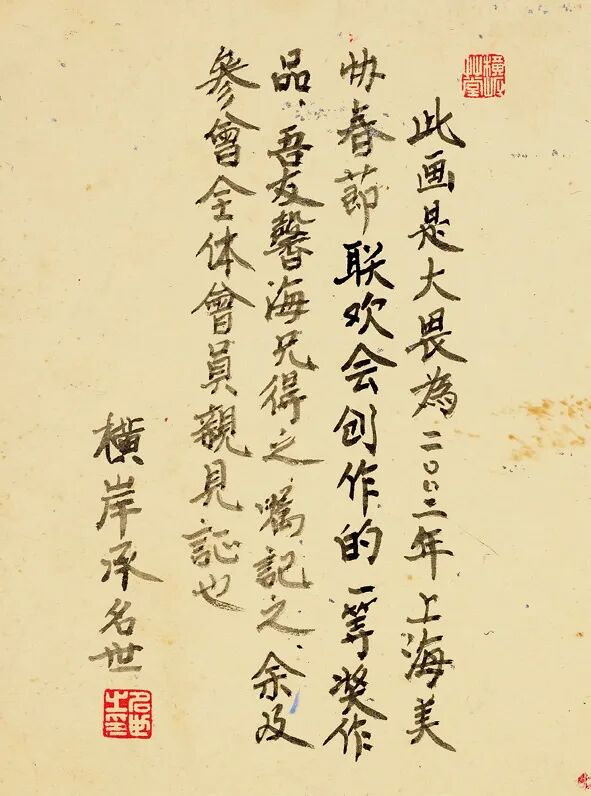 此画是大畏為二〇〇二年上海美
协春節联欢会创作的一等奖作
品，吾友馨海兄得之嘱記之，余及
參會全体會員親見証也
橫岸承名世